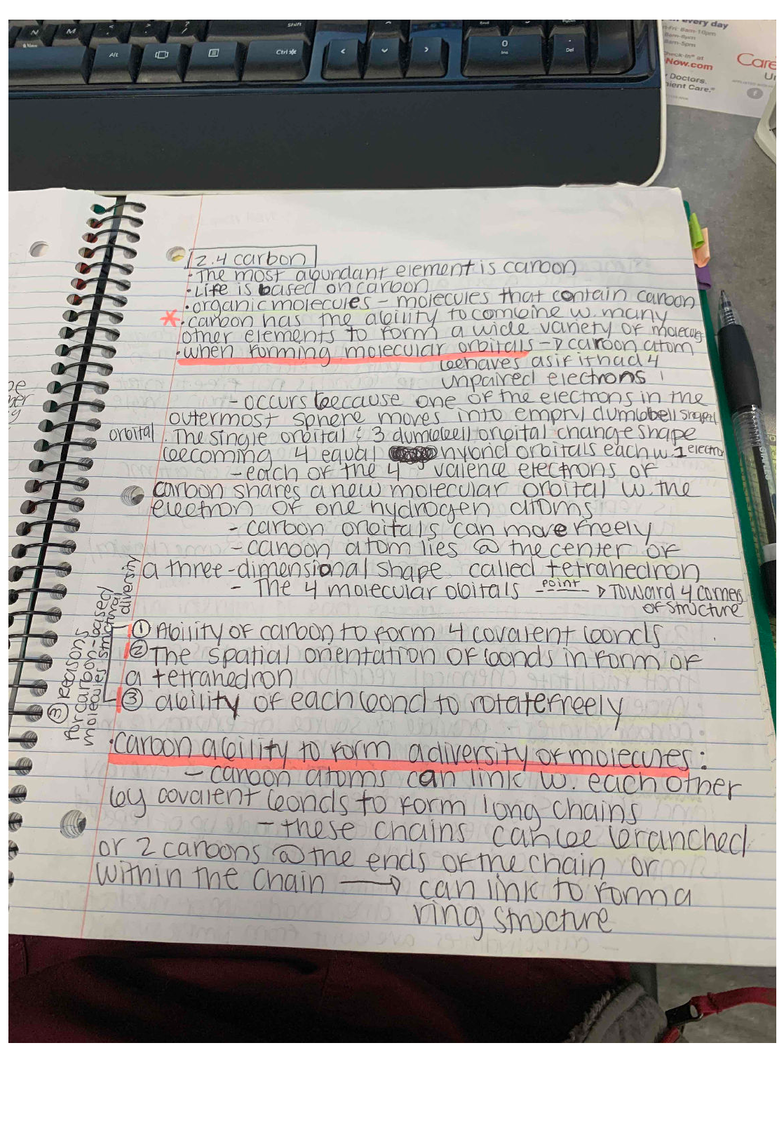 Shift
N
M
Alt
Ctrl
0
Ins
.
Del
every day
8am-8pm
8am-5pm
Now.com
Doctors.
ient Care."
Care
Ur
2.4 carbon
· The most abundant element is carbon
· Life is based on carbon
· organic molecules - molecules that contain carbon
* · carbon has the ability to combine w. many
other elements to form a wide variety of molecules
· when forming molecular orbitals → carbon atom
behaves as if it had 4
unpaired electrons
- occurs because one of the electrons in the
outermost sphere moves into empty dumbbell shaped
orbital . The single orbital & 3 dumbbell orbital change shape
becoming 4 equal hybrid orbitals each w. 1 electron
- each of the 4 valence electrons of
carbon shares a new molecular orbital w. the
electron of one hydrogen atoms
- carbon orbitals can move freely
- carbon atom lies @ the center of
a three-dimensional shape called tetrahedron
- The 4 molecular obitals point → Toward 4 corners
of structure
③ Reasons
for carbon-based
molecules structured
diversity
① Ability of carbon to form 4 covalent bonds
② The spatial orientation of bonds in form of
a tetrahedron
③ ability of each bond to rotate freely
· Carbon ability to form a diversity of molecules :
- carbon atoms can link w. each other
by covalent bonds to form long chains
- these chains can be branched
or 2 carbons @ the ends of the chain or
within the chain → can link to form a
ring structure